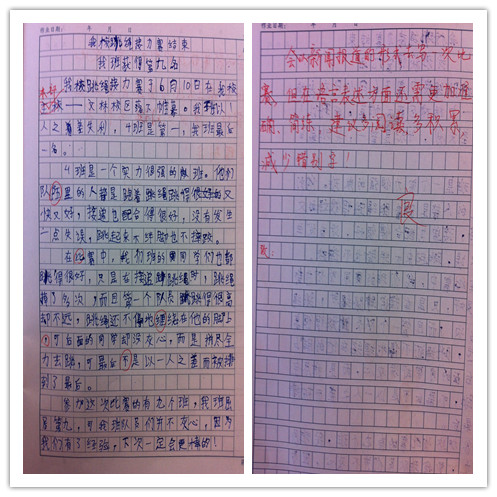 作业日期: 年 月 日
我校跳绳接力赛结束
我班获得第九名
本报 我校跳绳接力赛于6月10日在我校
文林校区落下帷幕。我班以1
人之差失利,4班是第一,我班最后
一名。
4班是一个实力很强的班。他们
队里的人都是跳着跳绳跳得很好的又
快又好,接道也配合得很好,没有发生
一点失误,跳起来不绊脚也不撞跤。
在比赛中,我们班的同学们也都
跳得很好,只是在接道跳绳时,跳绳
掉了几次,而且第一个队友跳得很高
却不远,跳绳还不慎地缠绕在他的脚上
,可后面的同学却没灰心,而是拼尽全
力去跳,可最后,是以一人之差而被排
到了最后。
参加这次比赛的有九个班,我班虽
是第九,可我班队员们并不灰心,因为
我们有了经验,下次一定会更棒的!
作业日期: 年 月 日
会以新闻报道的形式去写一次比
赛,但在语言表述方面还需更加准
确、简练,建议多阅读、多积累,
减少错别字!
良